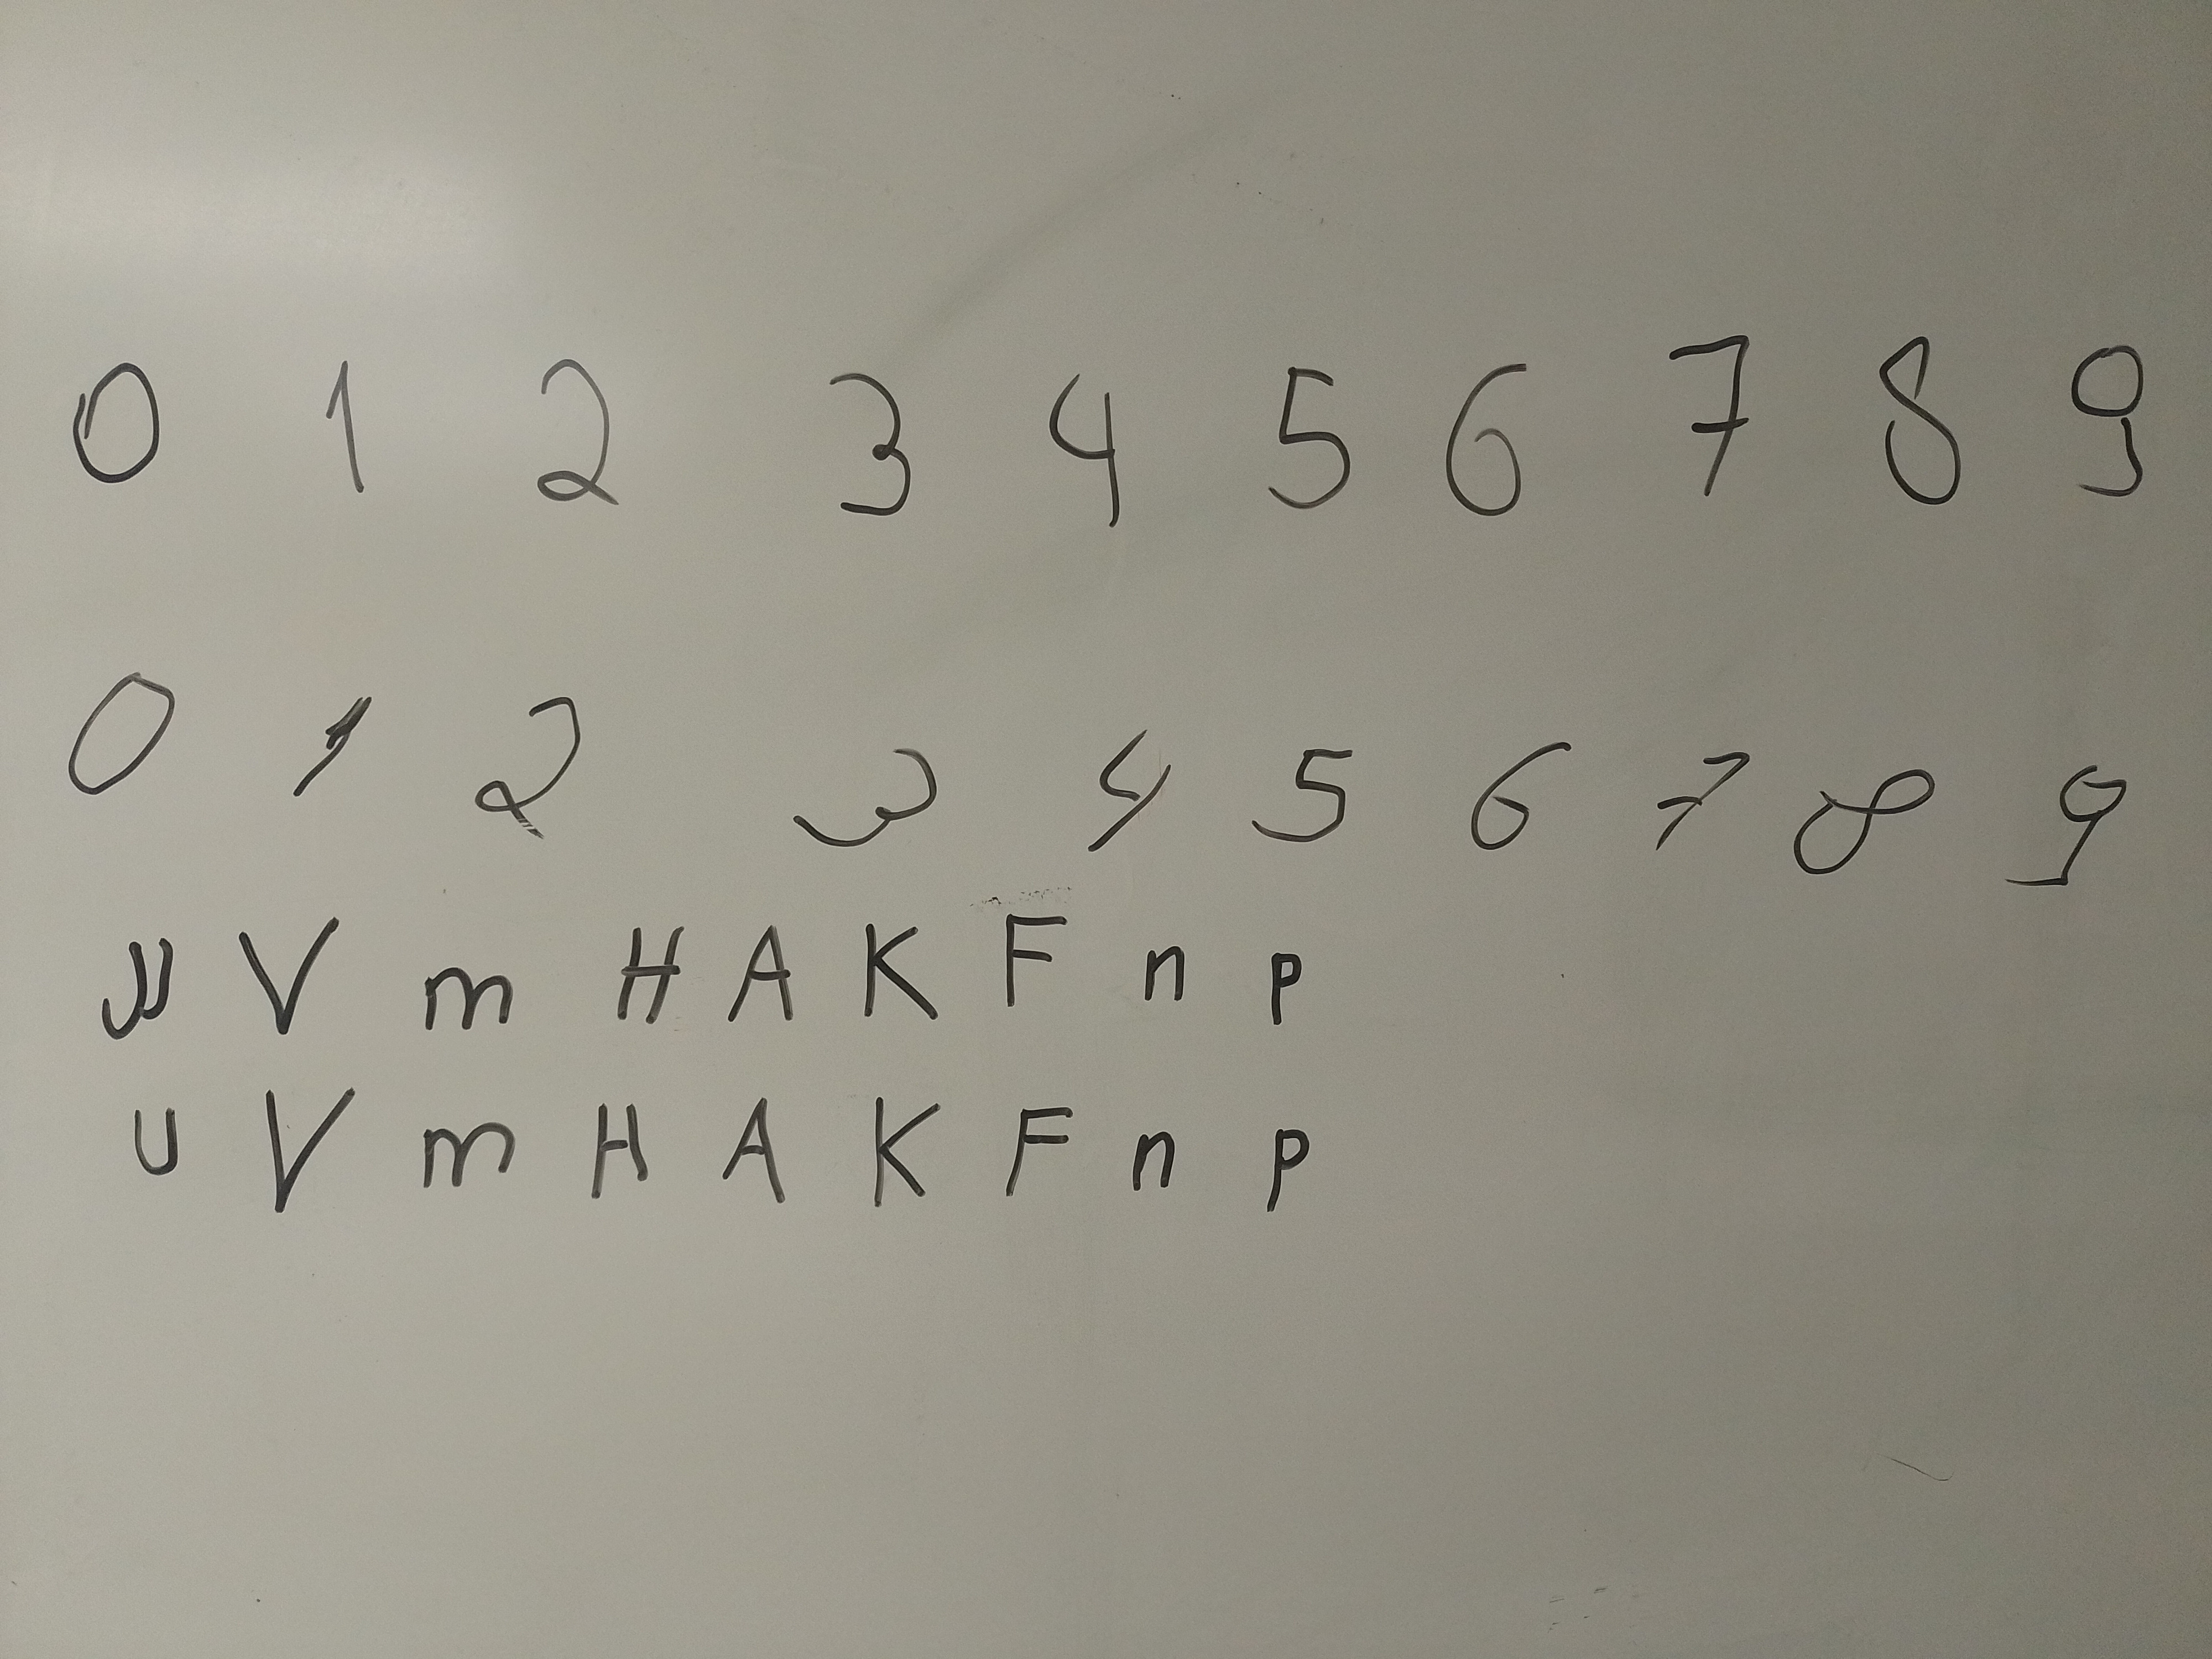 0 1 2 3 4 5 6 7 8 9
0 1 2 3 4 5 6 7 8 9
U V m H A K F n p
U V m H A K F n p